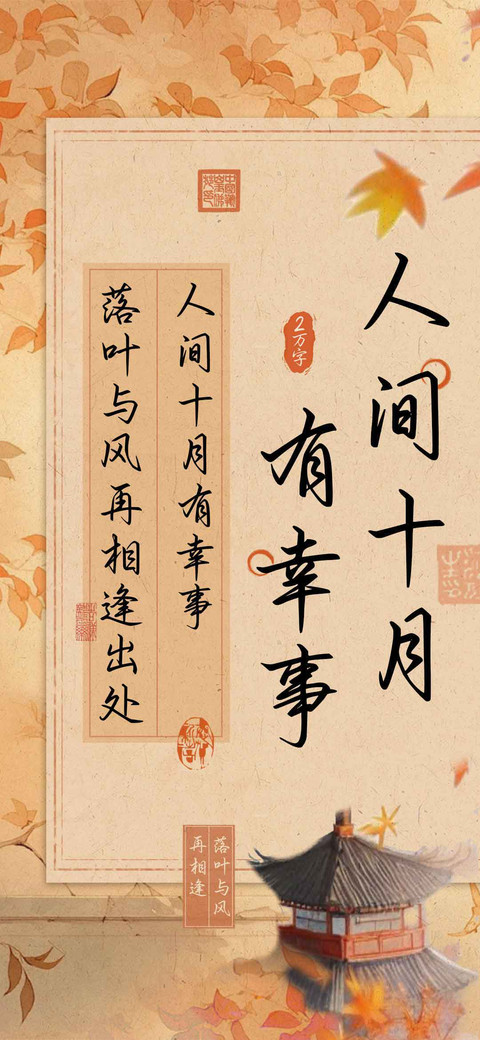 人间十月
有幸事
2万字
人间十月有幸事
落叶与风再相逢出处
落叶与风
再相逢